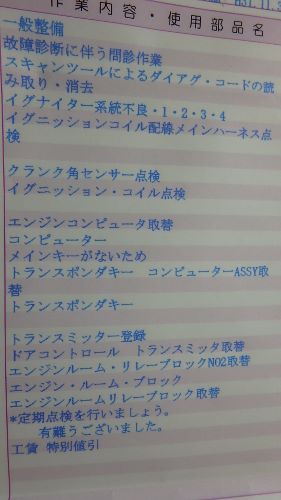 H31.11.3
作業内容・使用部品名
一般整備
故障診断に伴う問診作業
スキャンツールによるダイアグ・コードの読
み取り・消去
イグナイター系統不良・1・2・3・4
イグニッションコイル配線メインハーネス点
検
クランク角センサー点検
イグニッション・コイル点検
エンジンコンピュータ取替
コンピューター
メインキーがないため
トランスポンダキー コンピューターASSY取
替
トランスポンダキー
トランスミッター登録
ドアコントロール トランスミッタ取替
エンジンルーム・リレーブロックNO2取替
エンジン・ルーム・ブロック
エンジンルームリレーブロック取替
*定期点検を行いましょう。
有難うございました。
工賃 特別値引